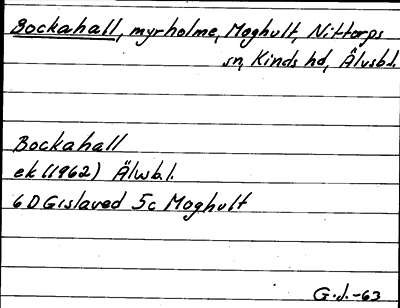 Bockahall, myrholme, Moghult, Nittorps
sn, Kinds hd, Älvsb.l.
Bockahall
ek (1962) Älvsb.l.
6D Gislaved 5c Moghult
G.J.-63